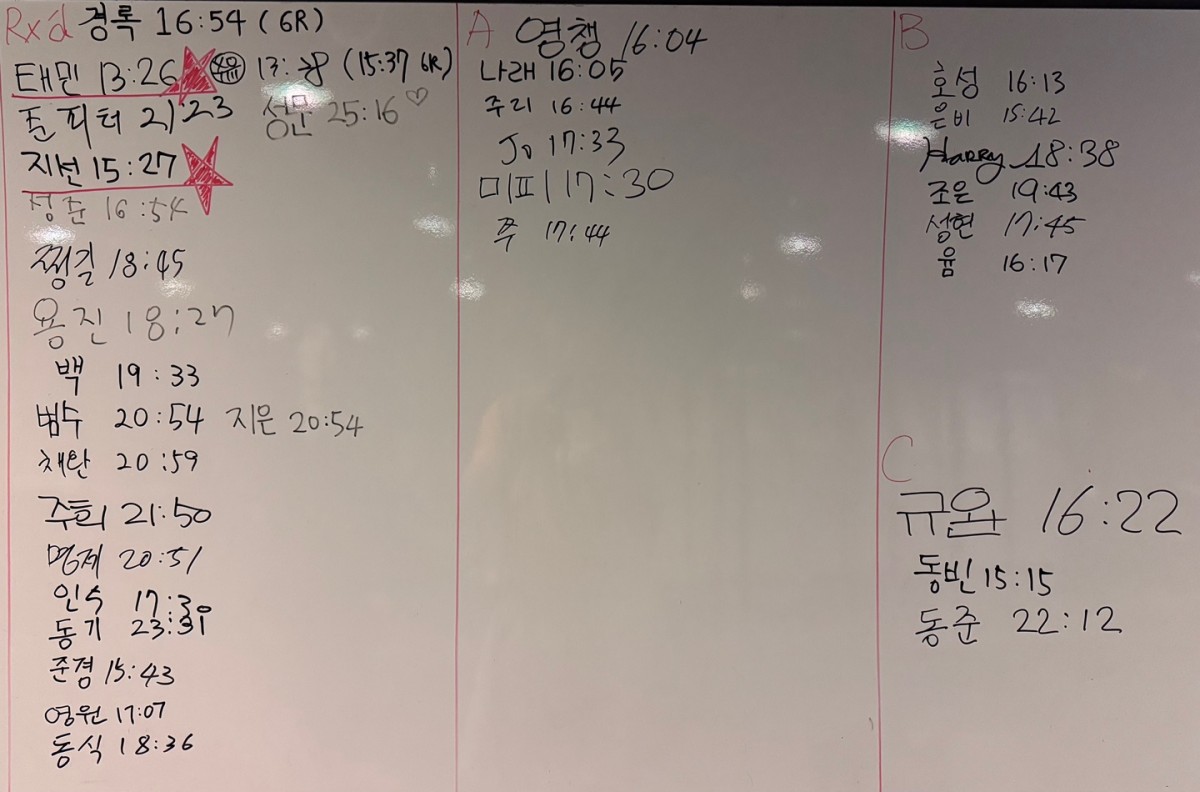 Rx'd 경록 16:54 (6R)
태민 13:26 13: (15:37 6R)
존 피터 21:23 성문 25:16 ♡
지선 15:27
정준 16:54
찡길 18:45
용진 18:27
백 19:33
범수 20:54 지은 20:54
채환 20:59
주희 21:50
명제 20:51
인수 17:30
동기 23:31
준경 15:43
영원 17:07
동식 18:36
A 영챙 16:04
나래 16:05
주리 16:44
Jo 17:33
미피 17:30
쭈 17:44
B
호성 16:13
은비 15:42
Harry 18:38
조은 19:43
성현 17:45
윰 16:17
C
규완 16:22
동빈 15:15
동준 22:12